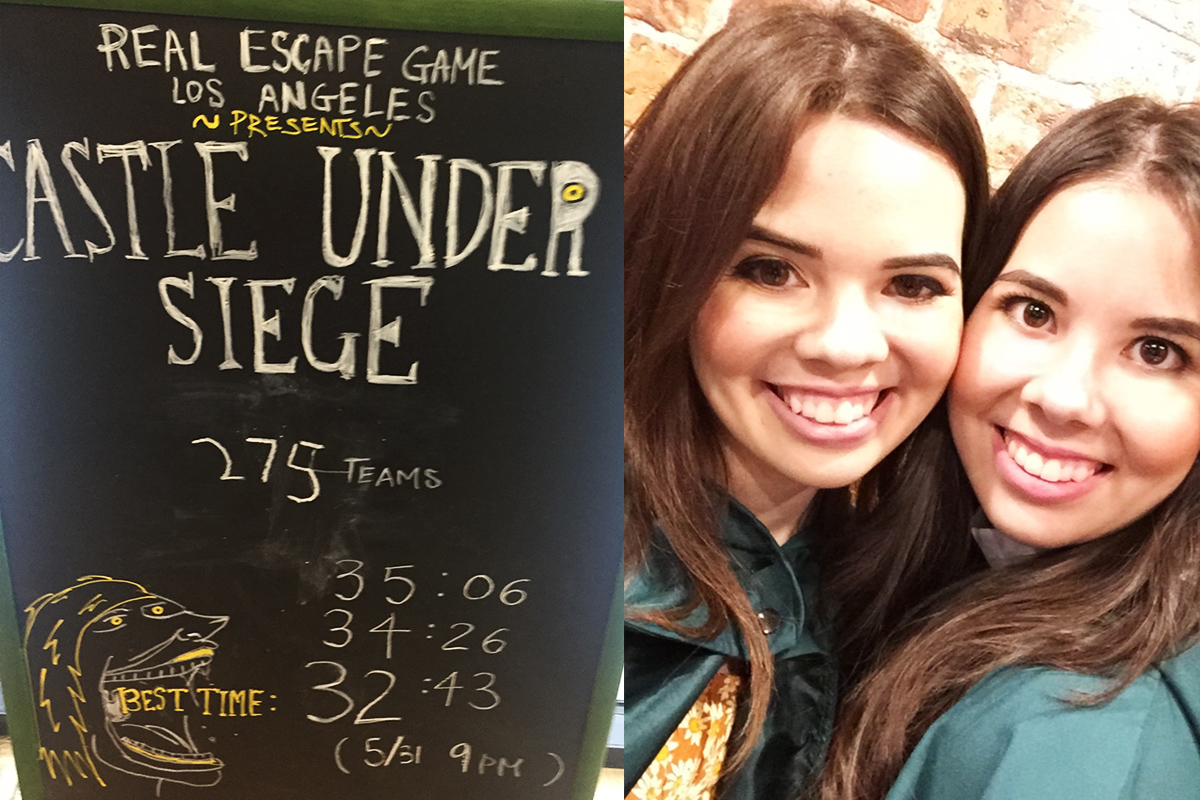 REAL ESCAPE GAME
LOS ANGELES
~PRESENTS~
CASTLE UNDER
SIEGE
275 TEAMS
35:06
34:26
BEST TIME: 32:43
(5/31 9PM)